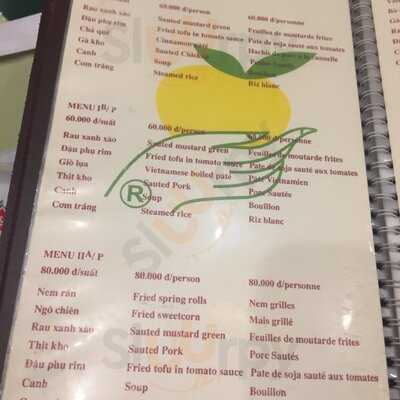 60.000 đ/person
60.000 đ/personne
Rau xanh xào Sauted mustard green Feuilles de moutarde frites
Đậu phụ rim Fried tofu in tomato sauce Pate de soja sauté aux tomates
Chả quế Cinnamon pâté Hachis de porc à la cannelle
Gà kho Sauted Chicken
Canh Soup Bouillon
Cơm trắng Steamed rice Riz blanc
MENU IB/ P
60.000 đ/suất 60.000 đ/person 60.000 đ/personne
Rau xanh xào Sauted mustard green Feuilles de moutarde frites
Đậu phụ rim Fried tofu in tomato sauce Pate de soja sauté aux tomates
Giò lụa Vietnamese boiled paté Pâté Vietnamien
Thịt kho Sauted Pork Porc Sautés
Canh Soup Bouillon
Cơm trắng Steamed rice Riz blanc
MENU IIA/ P
80.000 đ/suất 80.000 đ/person 80.000 đ/personne
Nem rán Fried spring rolls Nem grilles
Ngô chiên Fried sweetcorn Mais grillé
Rau xanh xào Sauted mustard green Feuilles de moutarde frites
Thịt kho Sauted Pork Porc Sautés
Đậu phụ rim Fried tofu in tomato sauce Pate de soja sauté aux tomates
Canh Soup Bouillon